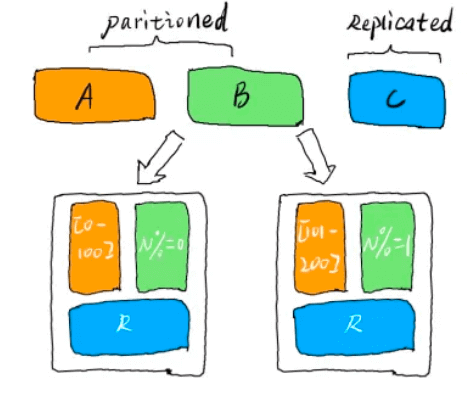 paritioned
Replicated
A
B
C
[0-
100]
N%=0
R
[101-
200]
N%=1
R